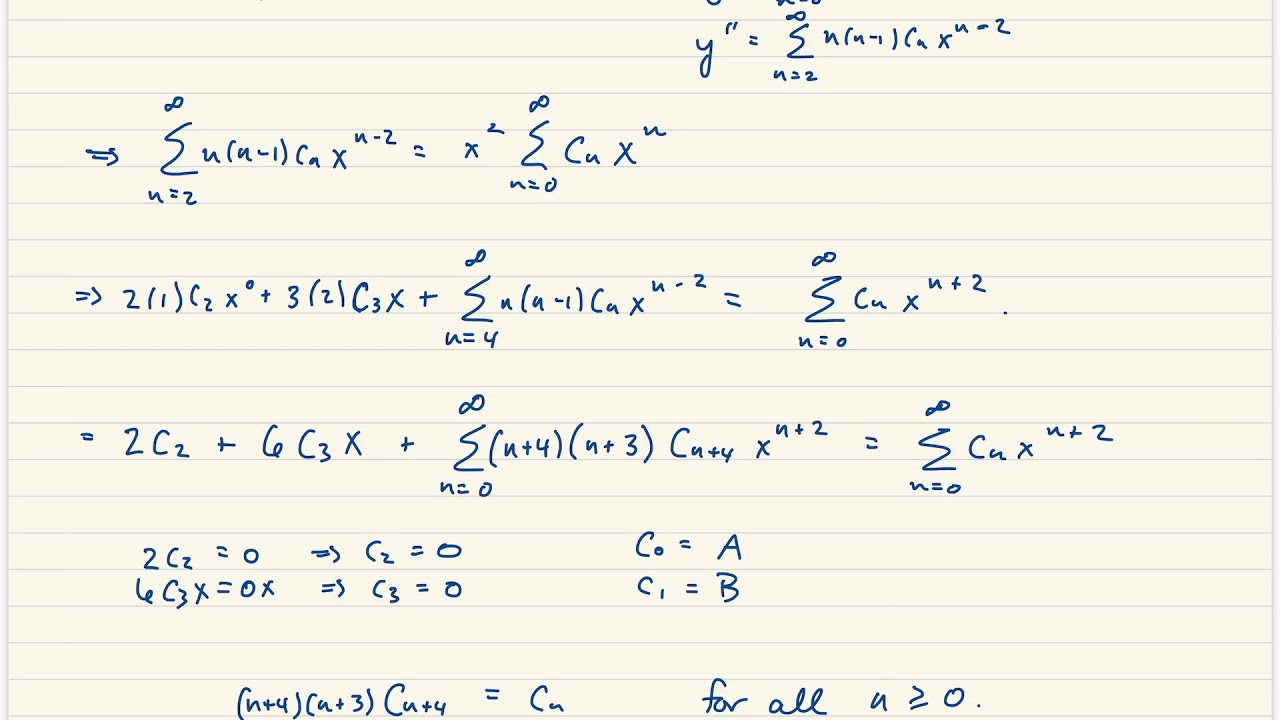 y'' = ∑_{n=2}^{∞} n(n-1) Cn x^{n-2}
⇒ ∑_{n=2}^{∞} n(n-1) Cn x^{n-2} = x^2 ∑_{n=0}^{∞} Cn x^n
⇒ 2(1)C_2 x^0 + 3(2)C_3 x + ∑_{n=4}^{∞} n(n-1) Cn x^{n-2} = ∑_{n=0}^{∞} Cn x^{n+2} .
= 2C_2 + 6C_3 x + ∑_{n=0}^{∞} (n+4)(n+3) C_{n+4} x^{n+2} = ∑_{n=0}^{∞} Cn x^{n+2}
2C_2 = 0 ⇒ C_2 = 0 C_0 = A
6C_3 x = 0x ⇒ C_3 = 0 C_1 = B
(n+4)(n+3) C_{n+4} = Cn for all n ≥ 0.